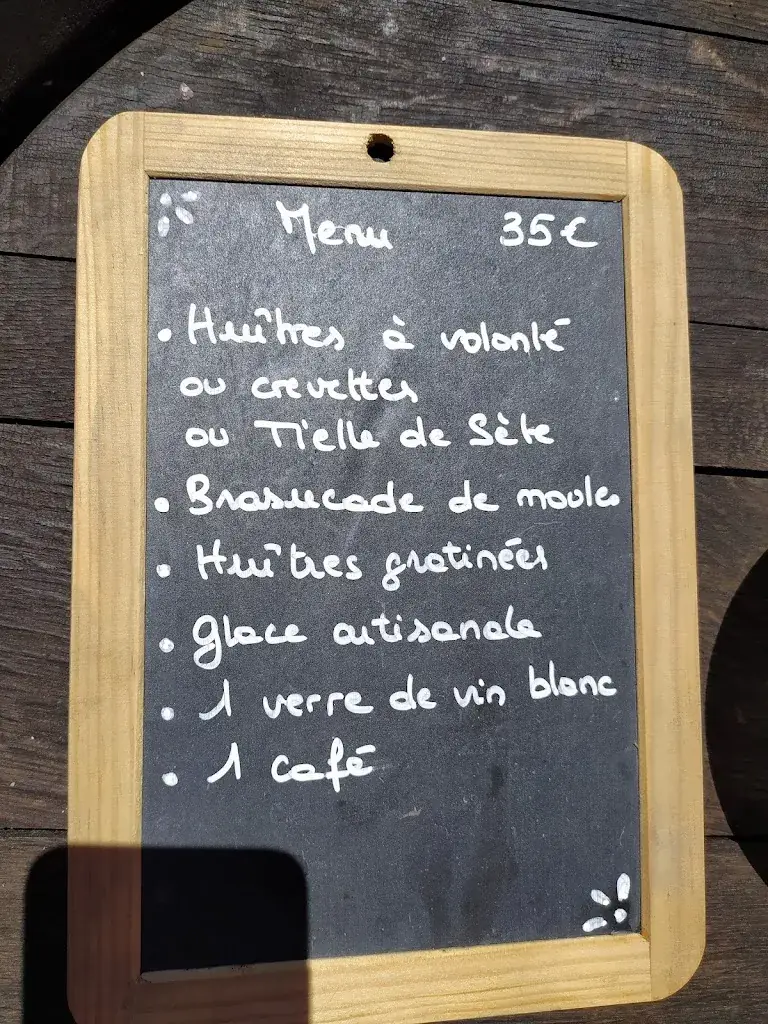 Menu 35€
• Huîtres à volonté
ou crevettes
ou Tielle de Sète
• Brasucade de moules
• Huîtres gratinées
• Glace artisanale
• 1 verre de vin blanc
• 1 café